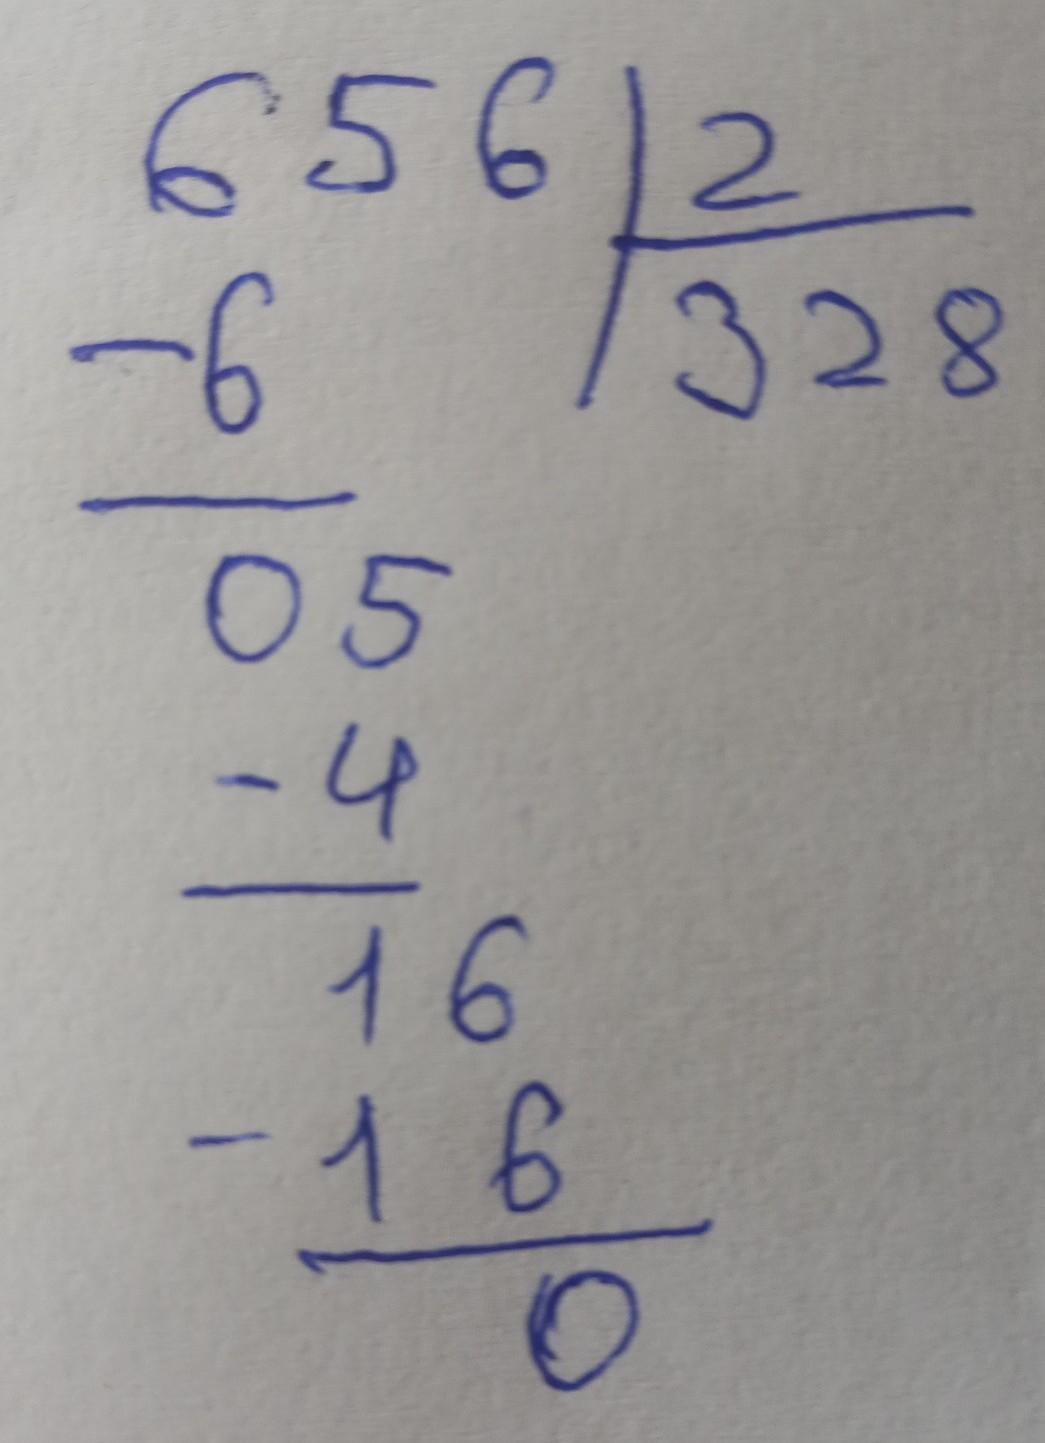 656 | 2
-6 | 328
05
-4
16
-16
0